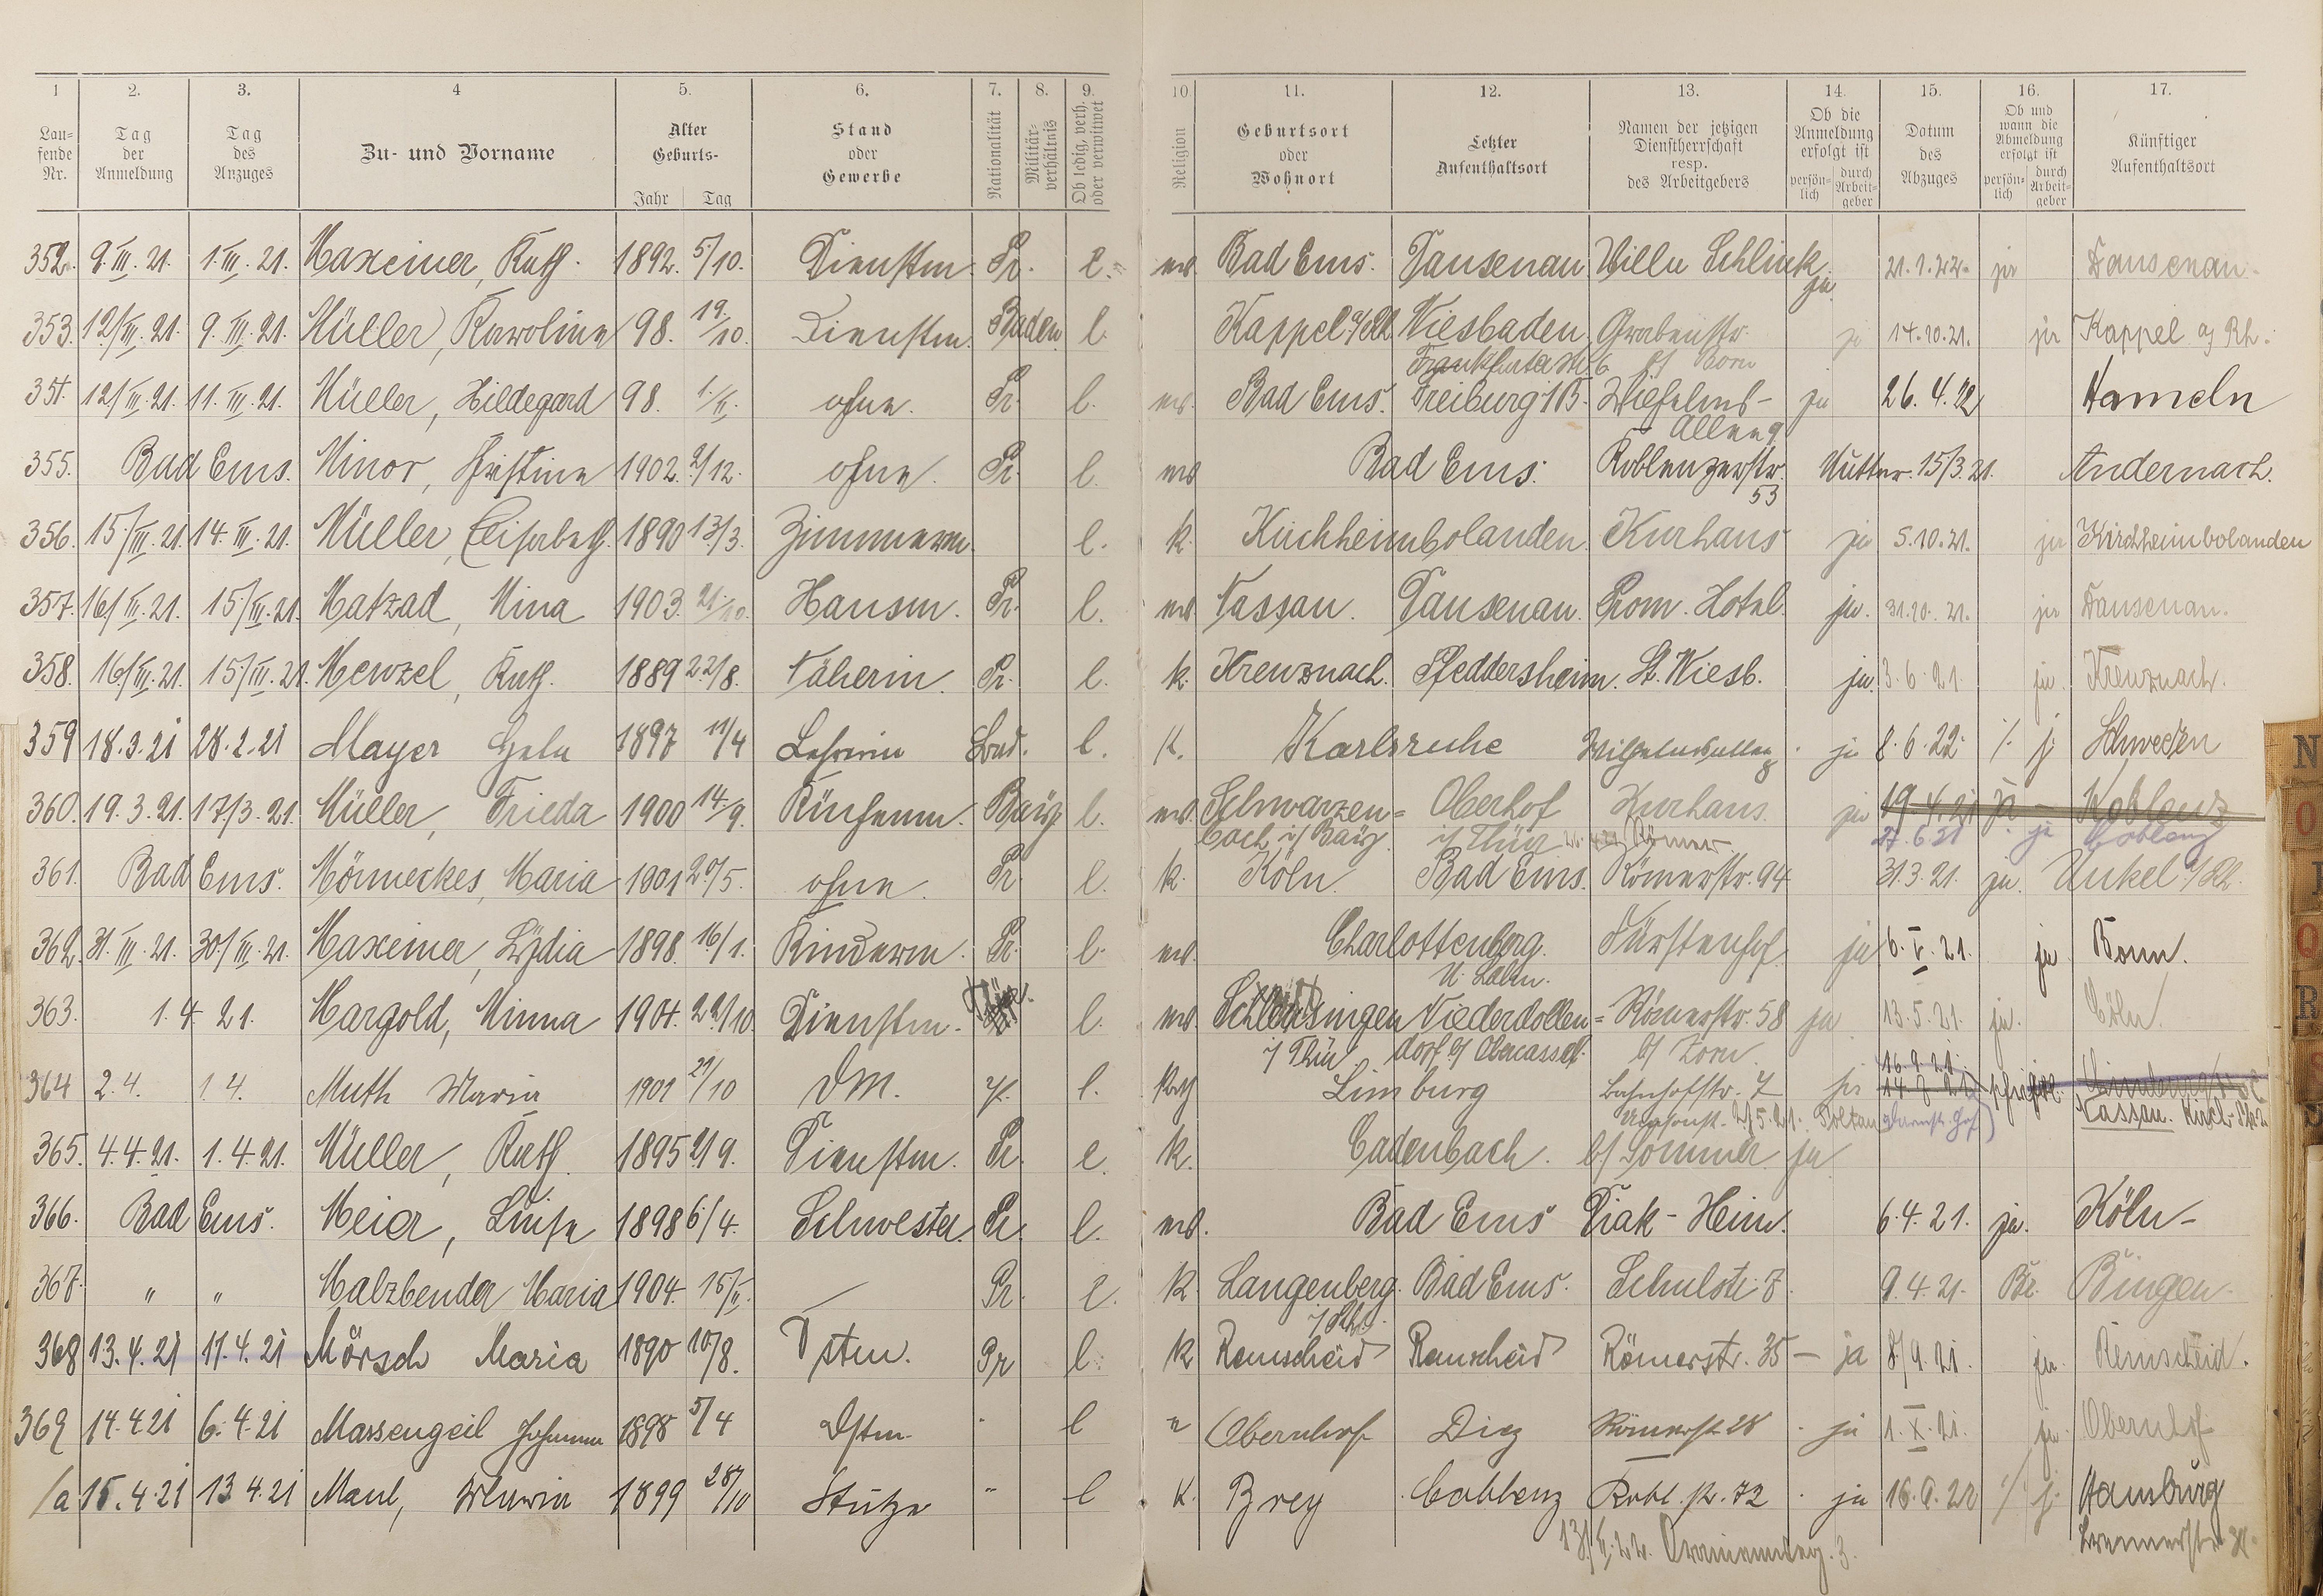 1 2. 3. 4 5. 6. 7. 8. 9. 10 11. 12. 13. 14. 15. 16. 17.
Lau=fende Nr. Tag der Anmeldung Tag des Anzuges Zu- und Vorname Alter Geburts- Jahr Tag Stand oder Gewerbe Nationalität Militär-verhältnis Ob ledig, verh. oder verwitwet Religion Geburtsort oder Wohnort Letzter Aufenthaltsort Namen der jetzigen Dienstherrschaft resp. des Arbeitgebers Ob die Anmeldung erfolgt ist persön-lich durch Arbeit-geber Datum des Abzuges Ob und wann die Abmeldung erfolgt ist persön-lich durch Arbeit-geber Künftiger Aufenthaltsort
352. 9. III. 21. 1. III. 21. Maxeiner, Kath. 1892. 5/10. Dienstm. Pr. l. ev. Bad Ems. Dausenau Schlink ja 21.1.22. ja Dausenau.
353. 12/III. 21. 9. III. 21. Müller, Karoline 98. 19./10. Dienstm. Baden l. Kappel a/Rh. Wiesbaden Grabenstr. ja 14.10.21. ja Kappel a/Rh.
Frankfurterstr. 6
354. 12/III. 21. 11. III. 21. Müller, Hildegard 98. 1./II. ohne. Pr. l. ev. Bad Ems. Freiburg i/B. Wilhelms-Allee 9 ja 26.4.22 Hameln
355. Bad Ems. Minor, Christine 1902. 2/12. ohne. Pr. l. ev. Bad Ems. Koblenzerstr. 53 Mutter. 15/3.21. Andernach.
356. 15/III. 21. 14. III. 21. Müller, Elisabeth. 1890 13/3. Zimmerm. l. k. Kirchheimbolanden. Kurhaus ja 5.10.21. ja Kirchheimbolanden
357. 16/III. 21. 15/III. 21. Matzad, Mina 1903. 21./10. Hausm. Pr. l. ev. Nassau. Dausenau. Rom. Hotel. ja. 31.10.21. ja Dausenau.
358. 16/III. 21. 15/III. 21. Menzel, Kath. 1889 22/8. Näherin. Pr. l. k. Kreuznach. Pfeddersheim. St. Wiesb. ja. 3.6.21. ja. Kreuznach.
359 18.3.21 28.2.21 Mayer Hele 1897 11/4 Lehrerin Bad. l. K. Karlsruhe Wilhelmsallee 8 ja 8.6.22 j. Schweden
360. 19.3.21. 17/3.21. Müller, Frieda 1900 14/9. Küchenm. Baÿ. l. ev. Schwarzen=bach i/Baÿ. Oberhof i/Thür Kurhaus. ja 19.4.21 ja Koblenz
Römer 27.6.21 ja Coblenz
361. Bad Ems. Mönneckes, Maria 1901 20/5. ohne. Pr. l. k. Köln. Bad Ems. Römerstr. 94 31.3.21. ja. Unkel a/Rh.
362. 31. III. 21. 30/III. 21. Maxeiner, Lÿdia 1898. 16/1. Kinderm. Pr. l. ev. Charlottenberg. Fürstenhof. ja 6. V. 21. ja Bonn.
U. Lahn.
363. 1.4.21. Margold, Minna 1904. 22/10. Dienstm. l. ev. Schleusingen i/Thür Niederdollen=dorf b/Obercassel. Römerstr. 58 b/Zorn. ja 13.5.21. ja. Cöln.
364 2.4. 1.4. Muth Maria 1901 29/10 DM. l. Kath Limburg Bahnhofstr. 7 ja 16.9.21. 14.7.21. Limburg
Nassau.
365. 4.4.21. 1.4.21. Müller, Kath. 1895 2/9. Dienstm. Pr. l. k. Cadenbach. b/Sommer ja
366. Bad Ems. Meier, Luise 1898 6/4. Schwester. Pr. l. ev. Bad Ems Diak-Heim. 6.4.21. ja. Köln-
367. " " Malzbender Maria 1904. 15/V. — Pr. l. k. Langenberg i/Rhl. Bad Ems. Schulstr. 7 9.4.21. Br. Bingen.
368 13.4.21 11.4.21 Mörsch Maria 1890 10/8. Dstm. Pr l. k Remscheid Remscheid Römerstr. 35 — ja 8/9.21. ja. Remscheid.
369 14.4.21 6.4.21 Massengeil Johanna 1898 5/4 Dstm. " l " Obernhof Diez Römerst. 28 ja 1. X. 21. ja. Obernhof
/a 15.4.21 13.4.21 Maul, 1899 28/10 Stütze " l K. Brey Coblenz Kobl. Str. 72 ja 16.9.22 j. Hamburg
Oranienweg. 3.